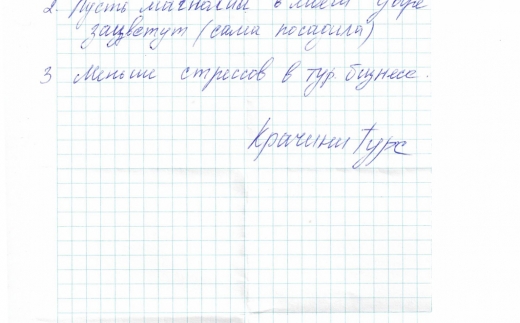 2. Пусть магнолии в моем дворе
зацветут (сама посадила)
3 Меньше стрессов в тур. бизнесе.
Крачини Турс